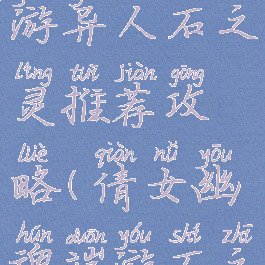 游异人石之
líng tuī jiàn gōng
灵推荐攻
lüè qiàn nǚ yōu
略(倩女幽
hún duān yóu shí zhī